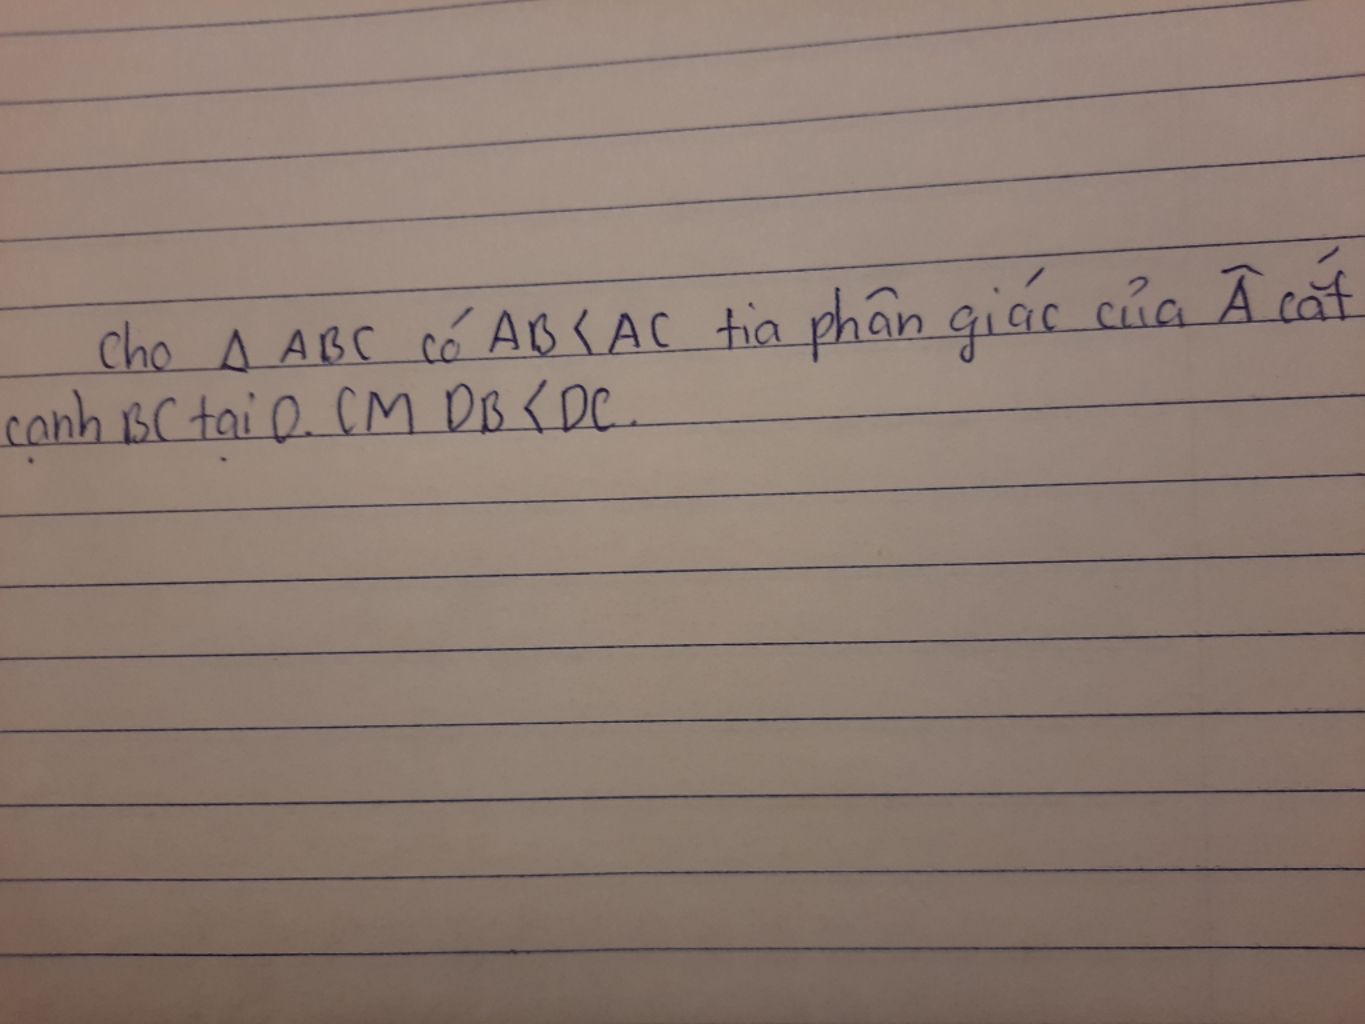 Cho Δ ABC có AB < AC tia phân giác của Â cắt
cạnh BC tại D. CM DB < DC.